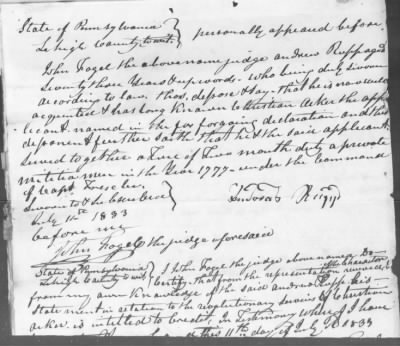 State of Pennsylvania
Lehigh County to wit } personally appeared before
John Fogel the above name judge andrew Rupp aged
Seventy three Years & upwords. who being duly sworn
according to law. thos. depose & say. that he is now well
acquinted & has long Known Christian Acker the app
licant named in the for forgging declaration and this
deponent further saith that he & the said applicant
served together a Ture of Two month duty as private
militia men in the Year 1777 under the Command
of Capt.
Sworn to & Subscribed
July 11th 1833
before me
John Fogel the judge aforesaid
State of Pennsylvania
Lehigh County to wit } I John Fogel the judge above named Do
Certify that from the representation the Character
from my own Knowledge of the said andrew Rupp his
Statement in relation to the revolutionary Servis of Christian
acker. is intitled to Credit. In Testimony where of I have
this 11th day of July 1833